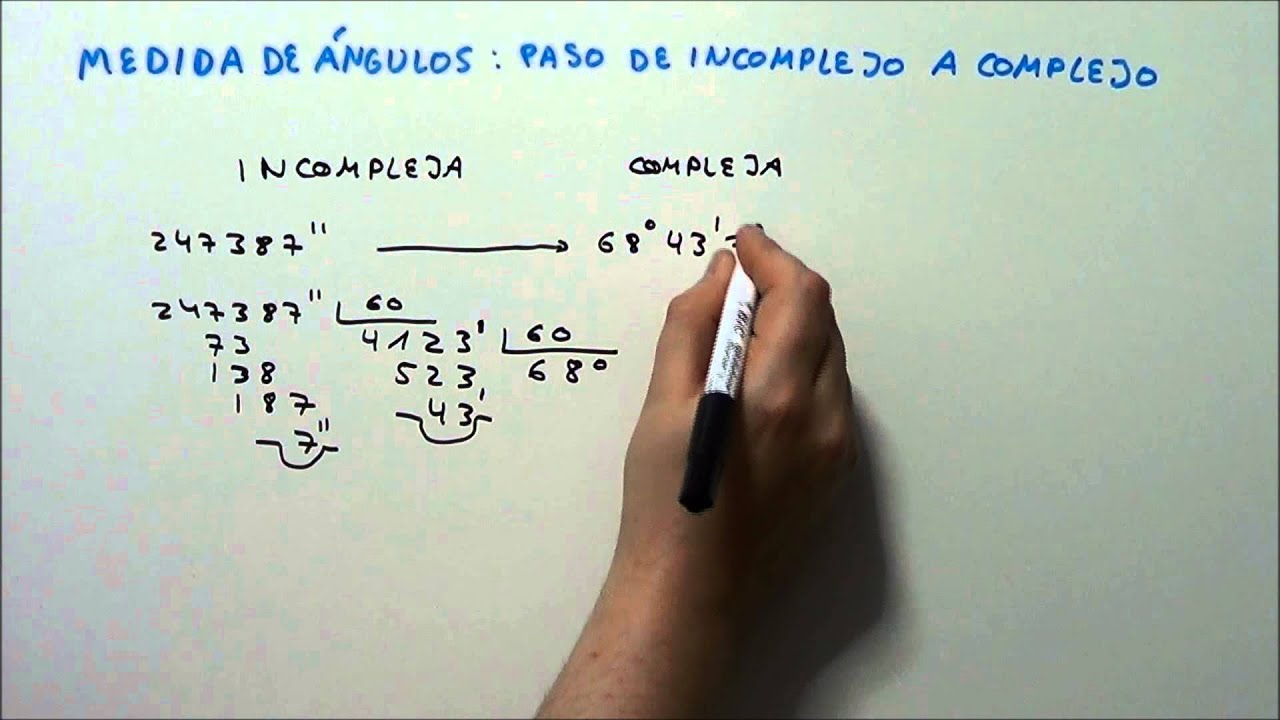 MEDIDA DE ÁNGULOS: PASO DE INCOMPLEJO A COMPLEJO
INCOMPLEJA COMPLEJA
247387'' → 68° 43' 7
247387'' 60
73 4123' 60
138 523 68°
187 43'
7''